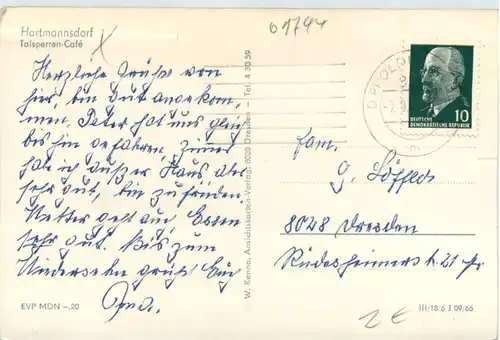 Hartmannsdorf
Talsperren-Café
01794
Herzliche Grüße von
hier, bin gut angekom-
men. Peter hat uns gleich
bis hin gefahren, Zimmer
habe ich außer Haus aber
sehr gut, bin zufrieden.
Wetter geht auch Essen
sehr gut. Bis zum
Wiedersehn grüßt Euch
W. Kenne, Ansichtskarten-Verlag, 8020 Dresden – Tel. 4 30 59
10
DEUTSCHE
DEMOKRATISCHE REPUBLIK
Fam.
G. Löffler
8028 Dresden
Rüdesheimerstr. 21
EVP MDN –,20
III/18/6 J 09/66
2€